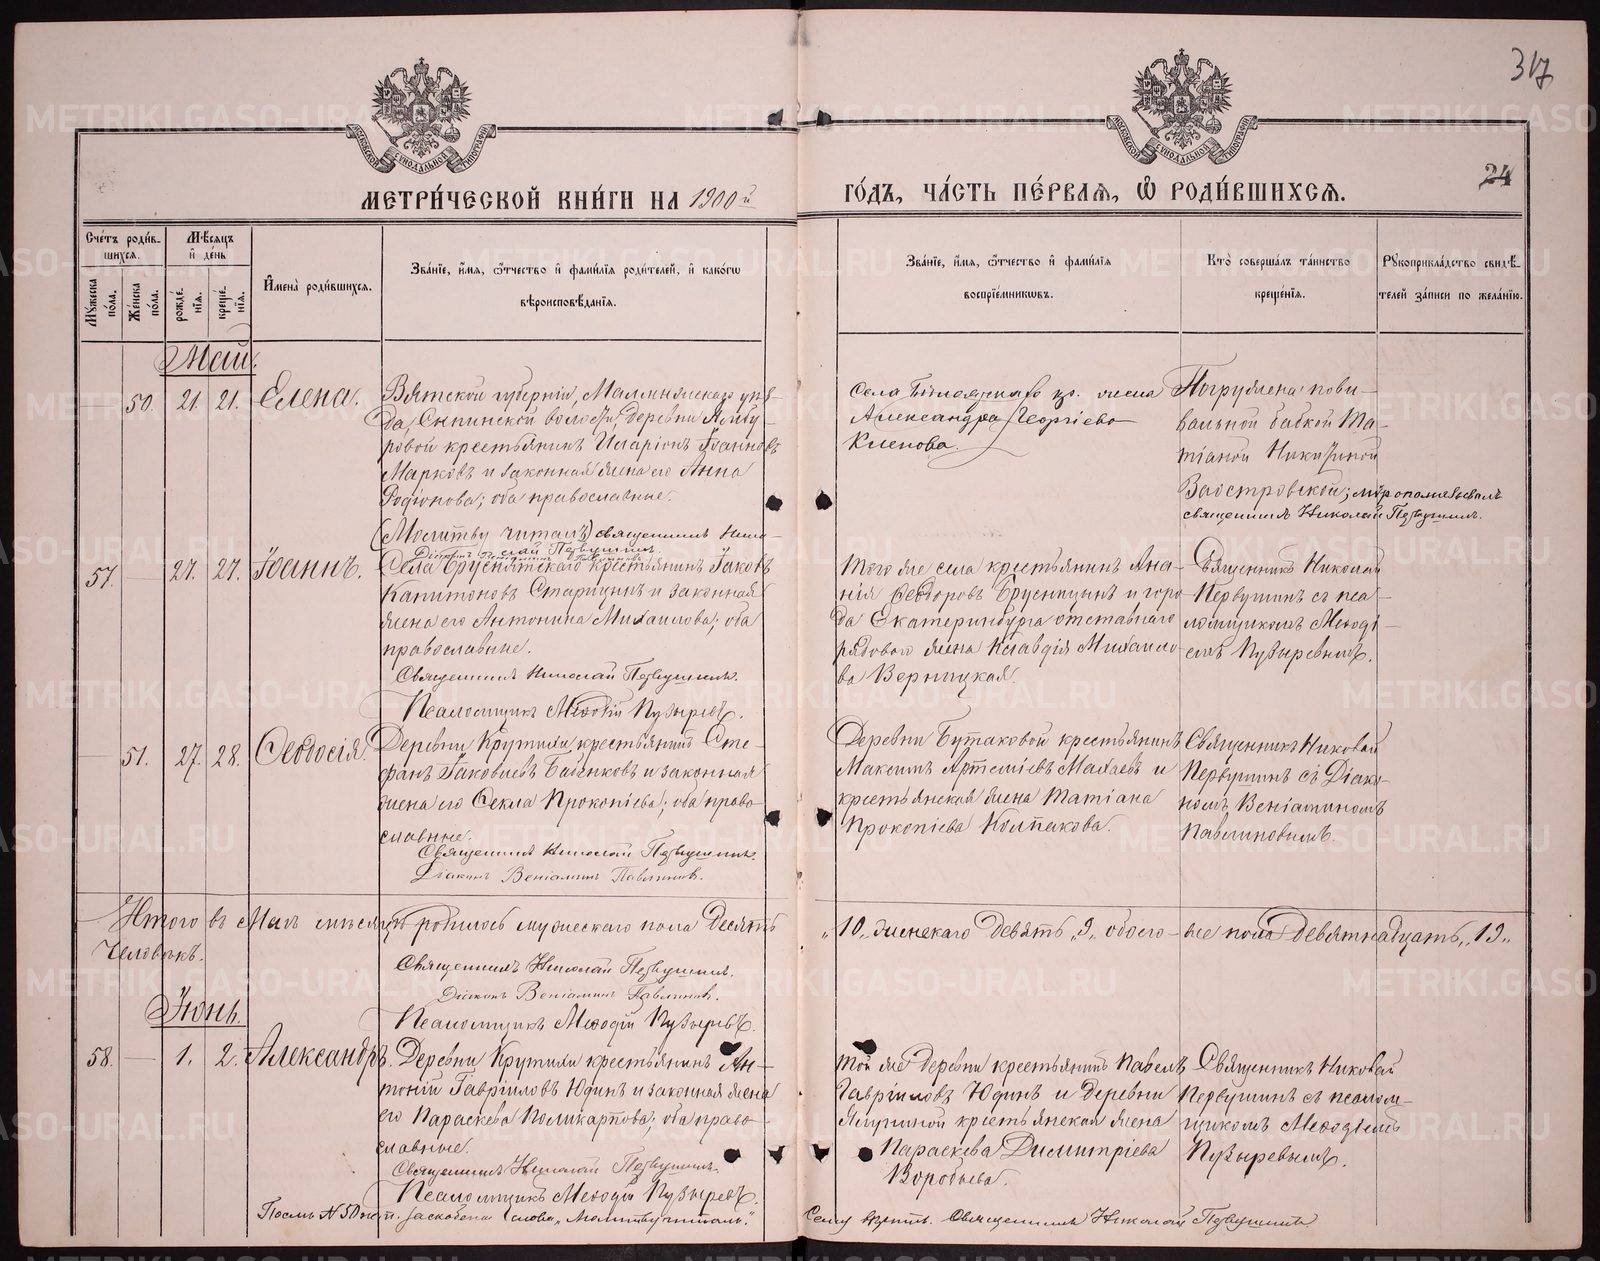 317
24
МЕТРИ́ЧЕСКОЙ КНИ́ГИ НА 1900й
ГО́ДЪ, ЧА́СТЬ ПЕ́РВАЯ, Ѡ РОДИ́ВШИХСЯ.
Сче́тъ роди́в-
шихся.
Мѣсяцъ
и де́нь
Мꙋжеска
по́ла.
Же́нска
по́ла.
рожде́-
нїя.
креще́-
нїя.
Имена̀ роди́вшихся.
Зва́нїе, и́мя, ѻ҆́тчество и фами́лїя роди́телей, и како́гѡ
вѣроисповѣ́данїя.
Зва́нїе, и́мя, ѻ҆́тчество и фами́лїя
воспрїе́мникѡвъ.
Кто̀ соверша́лъ та́инство
креще́нїя.
Рꙋкоприкла́дство свидѣ́-
телей за́писи по жела́нїю.
Май.
50. 21. 21. Елена.
Вятской губерніи, Малмыжскаго уѣз-
да, волости, деревни
ровой крестьянинъ Иларіонъ Іоанновъ
Марковъ и законная жена его Анна
Родіонова; оба православные.
(Молитву читалъ) священникъ Нико-
лай Первушинъ.
Діаконъ Веніаминъ Павлиновъ
Села жена
Александра Георгіева
Кленова.
Погружена пови-
вальной бабкой Та-
тіаной Никитиной
Заостровской; мѵропомазывалъ
священникъ Николай Первушинъ.
57. 27. 27. Іоаннъ.
Села Бруснятскаго крестьянинъ Іаковъ
Капитоновъ Старицынъ и законная
жена его Антонина Михаилова; оба
православные.
Священникъ Николай Первушинъ.
Псаломщикъ Меѳодій Пузыревъ.
Того же села крестьянинъ Ана-
нія Ѳеодоровъ Брусницынъ и горо-
да Екатеринбурга отставнаго
рядоваго жена Клавдія Михаило-
ва Верницкая.
Священникъ Николай
Первушинъ съ пса-
ломщикомъ Меѳоді-
емъ Пузыревымъ.
51. 27. 28. Ѳеодосія.
Деревни Крутихи крестьянинъ Сте-
фанъ Іаковлевъ Бабенковъ и законная
жена его Ѳекла Прокопіева; оба право-
славные.
Священникъ Николай Первушинъ.
Діаконъ Веніаминъ Павлиновъ.
Деревни Бутаковой крестьянинъ
Максимъ Артеміевъ Махаевъ и
крестьянская жена Татіана
Прокопіева Колпакова.
Священникъ Николай
Первушинъ съ Діако-
номъ Веніаминомъ
Павлиновымъ.
Итого въ Маѣ мѣсяцѣ родилось мужескаго пола Десять „10„ женскаго Девять „9„ обоего- пола Девятнадцать „19„
человѣкъ.
Священникъ Николай Первушинъ.
Діаконъ Веніаминъ Павлиновъ.
Псаломщикъ Меѳодій Пузыревъ.
Іюнь.
58. 1. 2. Александръ.
Деревни Крутихи крестьянинъ Ан-
тоній Гавріиловъ Юдинъ и законная жена
его Параскева Поликарпова; оба право-
славные.
Священникъ Николай Первушинъ.
Псаломщикъ Меѳодій Пузыревъ.
Той же деревни крестьянинъ Павелъ
Гавріиловъ Юдинъ и деревни
крестьянская жена
Параскева Димитріева
Воробьева.
Священникъ Николай
Первушинъ съ псалом-
щикомъ Меѳодіемъ
Пузыревымъ.
Послѣ № 50 заскоблены слова „Молитву читалъ.“ Сему вѣрить. Священникъ Николай Первушинъ
METRIKI.GASO-URAL.RU